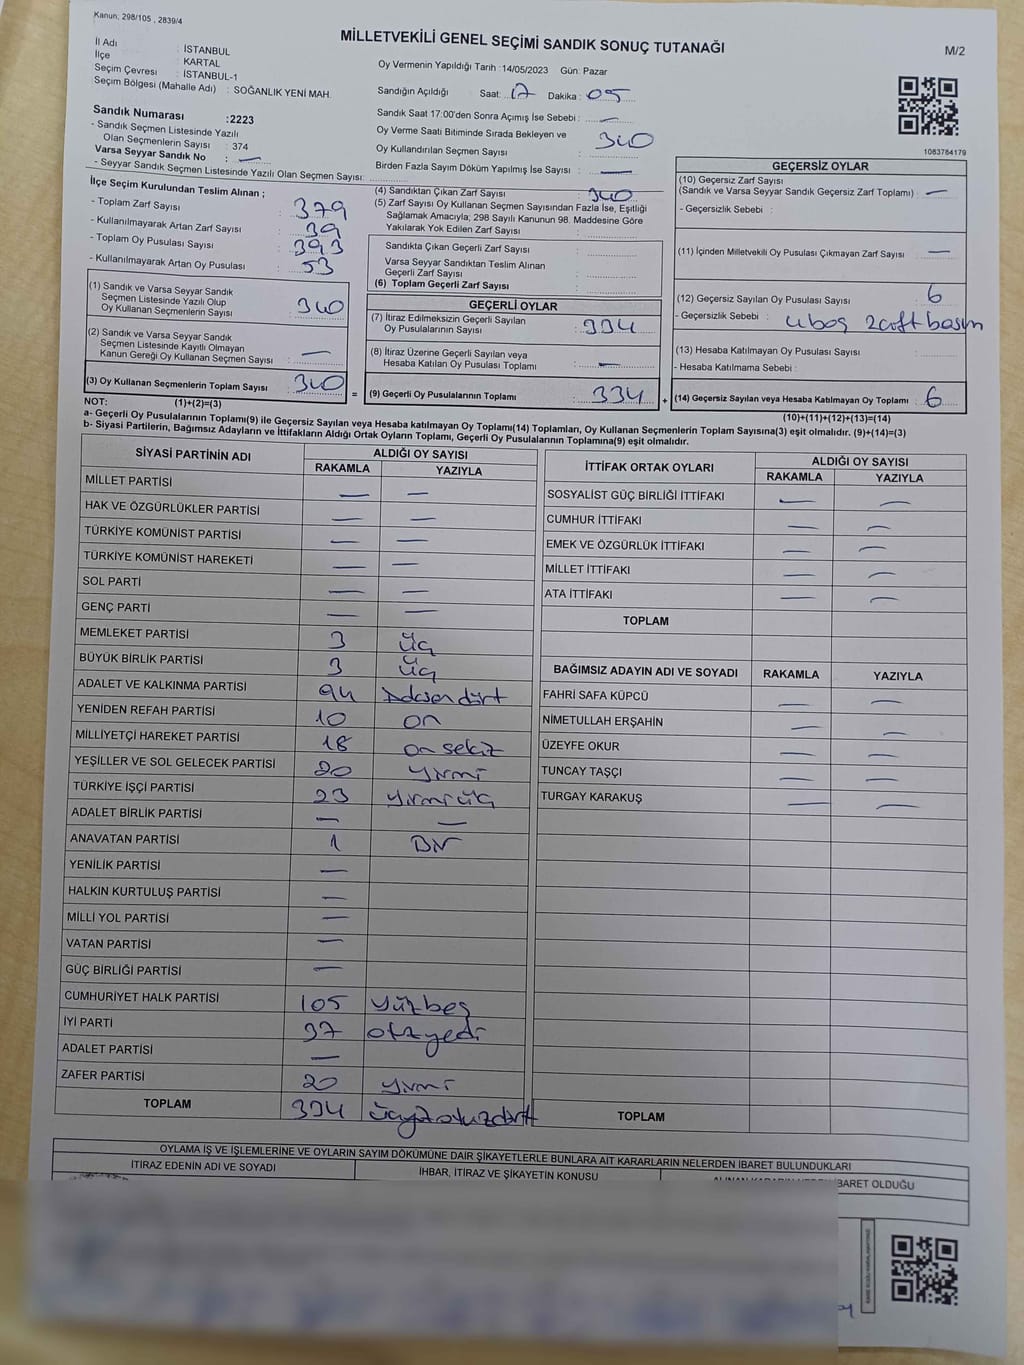 Kanun, 298/105 , 2839/4
MİLLETVEKİLİ GENEL SEÇİMİ SANDIK SONUÇ TUTANAĞI
M/2
İl Adı : İSTANBUL
İlçe : KARTAL
Seçim Çevresi : İSTANBUL-1
Seçim Bölgesi (Mahalle Adı) : SOĞANLIK YENİ MAH.
Oy Vermenin Yapıldığı Tarih :14/05/2023 Gün: Pazar
Sandığın Açıldığı Saat: 17 Dakika: 05
Sandık Saat 17:00'den Sonra Açımış İse Sebebi : —
Oy Verme Saati Bitiminde Sırada Bekleyen ve
Oy Kullandırılan Seçmen Sayısı : 340
Birden Fazla Sayım Döküm Yapılmış İse Sayısı : —
1083784179
Sandık Numarası :2223
- Sandık Seçmen Listesinde Yazılı
Olan Seçmenlerin Sayısı : 374
Varsa Seyyar Sandık No : —
- Seyyar Sandık Seçmen Listesinde Yazılı Olan Seçmen Sayısı:
İlçe Seçim Kurulundan Teslim Alınan ;
- Toplam Zarf Sayısı : 379
- Kullanılmayarak Artan Zarf Sayısı : 39
- Toplam Oy Pusulası Sayısı : 393
- Kullanılmayarak Artan Oy Pusulası : 53
(1) Sandık ve Varsa Seyyar Sandık
Seçmen Listesinde Yazılı Olup
Oy Kullanan Seçmenlerin Sayısı : 340
(2) Sandık ve Varsa Seyyar Sandık
Seçmen Listesinde Kayıtlı Olmayan
Kanun Gereği Oy Kullanan Seçmen Sayısı : —
(3) Oy Kullanan Seçmenlerin Toplam Sayısı : 340
(1)+(2)=(3)
(4) Sandıktan Çıkan Zarf Sayısı : 340
(5) Zarf Sayısı Oy Kullanan Seçmen Sayısından Fazla İse, Eşitliği
Sağlamak Amacıyla; 298 Sayılı Kanunun 98. Maddesine Göre
Yakılarak Yok Edilen Zarf Sayısı :
Sandıkta Çıkan Geçerli Zarf Sayısı :
Varsa Seyyar Sandıktan Teslim Alınan
Geçerli Zarf Sayısı :
(6) Toplam Geçerli Zarf Sayısı :
GEÇERLİ OYLAR
(7) İtiraz Edilmeksizin Geçerli Sayılan
Oy Pusulalarının Sayısı : 334
(8) İtiraz Üzerine Geçerli Sayılan veya
Hesaba Katılan Oy Pusulası Toplamı : —
= (9) Geçerli Oy Pusulalarının Toplamı : 334 +
GEÇERSİZ OYLAR
(10) Geçersiz Zarf Sayısı
(Sandık ve Varsa Seyyar Sandık Geçersiz Zarf Toplamı) : —
- Geçersizlik Sebebi :
(11) İçinden Milletvekili Oy Pusulası Çıkmayan Zarf Sayısı : —
(12) Geçersiz Sayılan Oy Pusulası Sayısı : 6
- Geçersizlik Sebebi : 4 boş 2 çift basım
(13) Hesaba Katılmayan Oy Pusulası Sayısı :
- Hesaba Katılmama Sebebi :
(14) Geçersiz Sayılan veya Hesaba Katılmayan Oy Toplamı : 6
(10)+(11)+(12)+(13)=(14)
NOT:
a- Geçerli Oy Pusulalarının Toplamı(9) ile Geçersiz Sayılan veya Hesaba katılmayan Oy Toplamı(14) Toplamları, Oy Kullanan Seçmenlerin Toplam Sayısına(3) eşit olmalıdır. (9)+(14)=(3)
b- Siyasi Partilerin, Bağımsız Adayların ve İttifakların Aldığı Ortak Oyların Toplamı, Geçerli Oy Pusulalarının Toplamına(9) eşit olmalıdır.
SİYASİ PARTİNİN ADI ALDIĞI OY SAYISI
RAKAMLA YAZIYLA
MİLLET PARTİSİ — —
HAK VE ÖZGÜRLÜKLER PARTİSİ — —
TÜRKİYE KOMÜNİST PARTİSİ — —
TÜRKİYE KOMÜNİST HAREKETİ — —
SOL PARTİ — —
GENÇ PARTİ — —
MEMLEKET PARTİSİ 3 üç
BÜYÜK BİRLİK PARTİSİ 3 üç
ADALET VE KALKINMA PARTİSİ 94 Doksandört
YENİDEN REFAH PARTİSİ 10 on
MİLLİYETÇİ HAREKET PARTİSİ 18 on sekiz
YEŞİLLER VE SOL GELECEK PARTİSİ 20 yirmi
TÜRKİYE İŞÇİ PARTİSİ 23 yirmiüç
ADALET BİRLİK PARTİSİ — —
ANAVATAN PARTİSİ 1 Bir
YENİLİK PARTİSİ —
HALKIN KURTULUŞ PARTİSİ —
MİLLİ YOL PARTİSİ —
VATAN PARTİSİ —
GÜÇ BİRLİĞİ PARTİSİ —
CUMHURİYET HALK PARTİSİ 105 yüzbeş
İYİ PARTİ 37 otuzyedi
ADALET PARTİSİ —
ZAFER PARTİSİ 20 yirmi
TOPLAM 334 üçyüzotuzdört
İTTİFAK ORTAK OYLARI ALDIĞI OY SAYISI
RAKAMLA YAZIYLA
SOSYALİST GÜÇ BİRLİĞİ İTTİFAKI — —
CUMHUR İTTİFAKI — —
EMEK VE ÖZGÜRLÜK İTTİFAKI — —
MİLLET İTTİFAKI — —
ATA İTTİFAKI — —
TOPLAM
BAĞIMSIZ ADAYIN ADI VE SOYADI RAKAMLA YAZIYLA
FAHRİ SAFA KÜPCÜ — —
NİMETULLAH ERŞAHİN — —
ÜZEYFE OKUR — —
TUNCAY TAŞÇI — —
TURGAY KARAKUŞ — —
TOPLAM
OYLAMA İŞ VE İŞLEMLERİNE VE OYLARIN SAYIM DÖKÜMÜNE DAİR ŞİKAYETLERLE BUNLARA AİT KARARLARIN NELERDEN İBARET BULUNDUKLARI
İTİRAZ EDENİN ADI VE SOYADI İHBAR, İTİRAZ VE ŞİKAYETİN KONUSU İBARET OLDUĞU